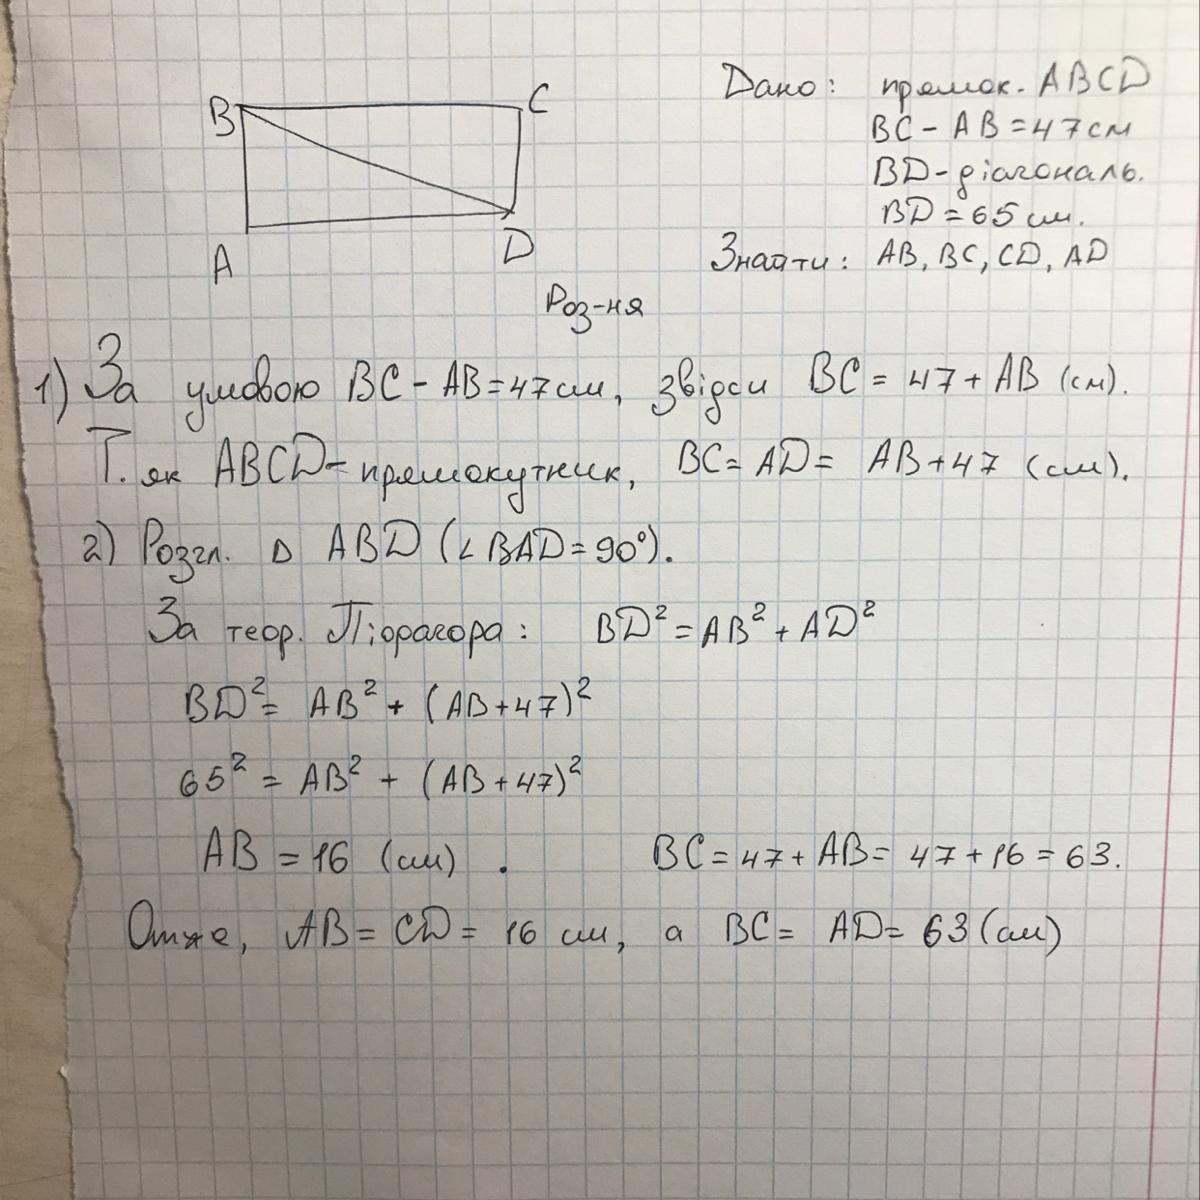 B
C
A
D
Дано: прямок. ABCD
BC - AB = 47 см
BD - діагональ.
BD = 65 см.
Знайти: AB, BC, CD, AD
Роз-ня
1) За умовою BC - AB = 47 см, звідси BC = 47 + AB (см).
Т. як ABCD - прямокутник, BC = AD = AB + 47 (см).
2) Розгл. △ ABD (∠BAD = 90°).
За теор. Піфагора: BD² = AB² + AD²
BD² = AB² + (AB + 47)²
65² = AB² + (AB + 47)²
AB = 16 (см). BC = 47 + AB = 47 + 16 = 63.
Отже, AB = CD = 16 см, а BC = AD = 63 (см)